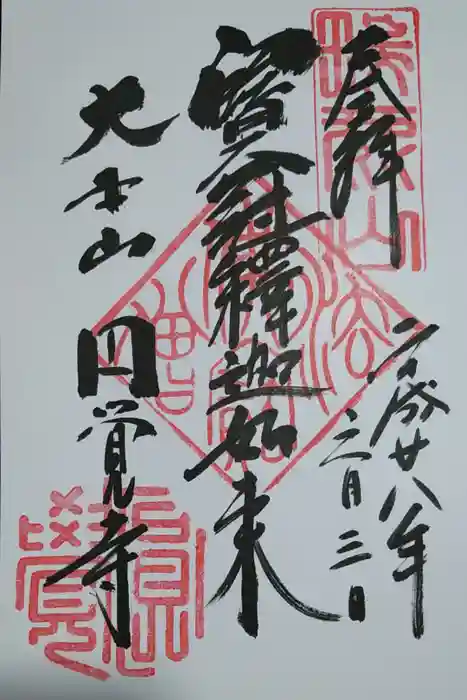 奉拝
平成廿八年
三月三日
寶冠釋迦如来
大本山
円覚寺